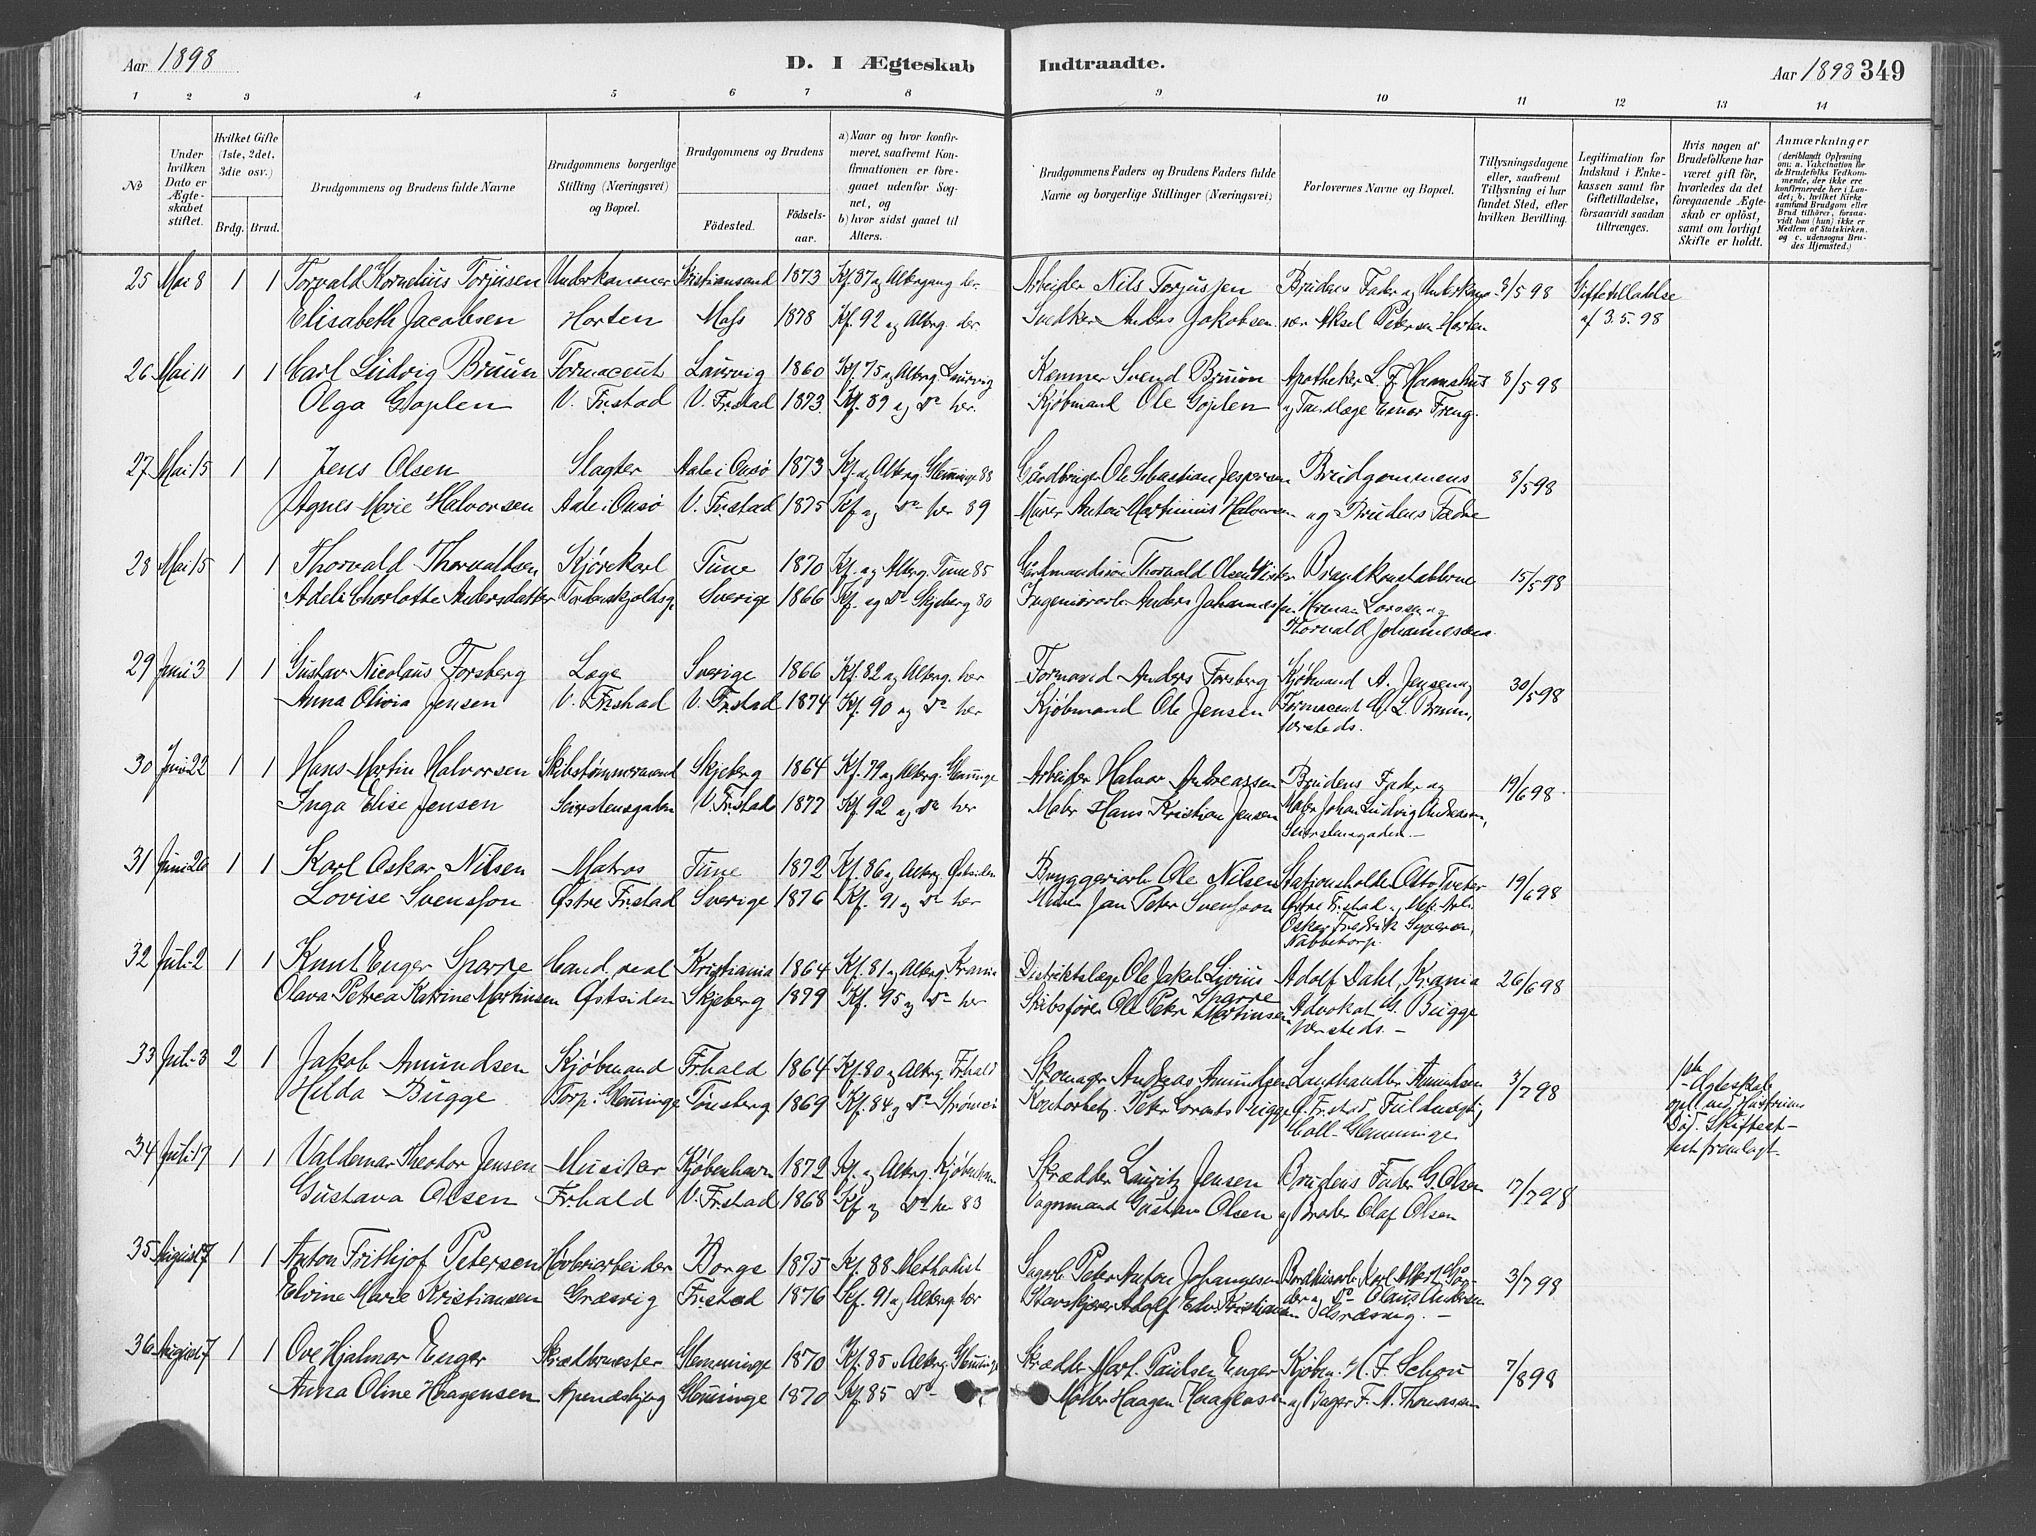 Aar 1898
D. I Ægteskab Indtraadte.
Aar 1898 349
1 2 3 4 5 6 7 8 9 10 11 12 13 14
No
Under hvilken Dato er Ægteskabet stiftet.
Hvilket Gifte (1ste, 2det, 3die osv.)
Brdg. Brud.
Brudgommens og Brudens fulde Navne
Brudgommens borgerlige Stilling (Næringsvei) og Bopæl.
Brudgommens og Brudens
Fødested.
Fødselsaar.
a) Naar og hvor konfirmeret, saafremt Konfirmationen er foregaaet udenfor Sognet, og
b) hvor sidst gaaet til Alters.
Brudgommens Faders og Brudens Faders fulde Navne og borgerlige Stillinger (Næringsvei)
Forlovernes Navne og Bopæl.
Tillysningsdagene eller, saafremt Tillysning ei har fundet Sted, efter hvilken Bevilling.
Legitimation for Indskud i Enkekassen samt for Giftetilladelse, forsaavidt saadan tiltrænges.
Hvis nogen af Brudefolkene har været gift før, hvorledes da det foregaaende Ægteskab er opløst, samt om lovligt Skifte er holdt.
Anmærkninger
(deriblandt Oplysning om: a. Vakcination for de Brudefolks Vedkommende, der ikke ere konfirmerede her i Landet; b. hvilket Kirkesamfund Brudgom eller Brud tilhører, forsaavidt han (hun) ikke er Medlem af Statskirken. og c. udensogns Brudes Hjemsted.)
25 Mai 8 1 1 Torvald Kornelius Torjusen Underkanoner Kristiansand 1873 Kf. 87 og Altergang der. Arbeider Nils Torjussen Brudens Fader og Underkano- 8/5 98 Giftetilladelse
Elisabeth Jacobsen Horten Moss 1878 Kf. 92 og Alterg. der Snedker Anders Jakobsen ner Aksel Petersen Horten af 3.5.98
26 Mai 11 1 1 Carl Ludvig Bruun Farmaceut Laurvig 1860 Kf. 75 og Alterg. Laurvig Kemner Svend Bruun Apotheker L. F. 8/5 98
Olga Gjøplen V. Fr.stad V. Fr.stad 1873 Kf. 89 og Do her. Kjøbmand Ole Gjøplen og Tandlæge Freng.
27 Mai 15 1 1 Jens Olsen Slagter Aale i Onsø 1873 Kf. og Alterg. Glemminge 88 Gårdbruger Ole Sebastian Jespersen Brudgommens 8/5 98
Agnes Marie Halvorsen Aale i Onsø V. Fr.stad 1875 Kf. og Do her 89 Murer Anton Martinius Halvorsen og Brudens Fædre
28 Mai 15 1 1 Thorvald Thorvaldsen Kjørekarl Tune 1870 Kf. og Alterg. Tune 85 Gårdmandssøn Thorvald Olsen Brandkonstablerne 15/5 98
Adeli Charlotte Andersdatter Tordenskjoldsg. Sverige 1866 Kf. og Do Skjeberg 80 Anders Johannessen Herman Larsen og
Thorvald Johannesen
29 Juni 3 1 1 Gustav Nicolaus Forsberg Læge Sverige 1866 Kf. 82 og Alterg. her Anders Forsberg Kjøbmand A. Jensen og 30/5 98
Anna Olivia Jensen V. Fr.stad V. Fr.stad 1874 Kf. 90 og Do her Kjøbmand Ole Jensen Farmaceut C. L. Bruun,
hersteds.
30 Juni 22 1 1 Hans Martin Halvorsen Skibstømmermand Skjeberg 1864 Kf. 79 og Alterg. Glemminge Arbeider Halvor Andreassen Brudens Fader og 19/6 98
Inga Elise Jensen Seierstensgaden V. Fr.stad 1877 Kf. 92 og Do her Hans Kristian Jensen Johan Ludvig Andreasen,
Seierstensgaden.
31 Juni 26 1 1 Karl Oskar Nilsen Matros Tune 1872 Kf. 86 og Alterg. Østsiden Bryggeriarb. Ole Nilsen Stationsholder Otto Tveter 19/6 98
Lovise Svensson Østre Fr.stad Sverige 1876 Kf. 91 og Do her Jan Peter Svensson Østre Fr.stad og
Oskar Fredrik
Nabbetorp.
32 Juli 2 1 1 Knut Enger Sparre Cand. real Kristiania 1864 Kf. 81 og Alterg. Krania Distriktslæge Ole Jakob Livius Sparre Adolf Dahl, Krania 26/6 98
Olava Petrea Katrine Martinsen Østsiden Skjeberg 1879 Kf. 95 og Do her Skibsfører Ole Peter Martinsen Advokat G. Bugge
hersteds.
33 Juli 3 2 1 Jakob Amundsen Kjøbmand Fr.hald 1864 Kf. 80 og Alterg. Fr.hald Skomager Andreas Amundsen Landhandler Amundsen 3/7 98 1ste Ægteskab
Hilda Bugge Torp. Glemminge Tønsberg 1869 Kf. 84 og Do Peter Bugge Ø. Fr.stad Fuldmægtig opl. ved Hustruens
Coll. Glemminge Død. Skifteat-
test fremlagt.
34 Juli 17 1 1 Valdemar Theodor Jensen Musiker Kjøbenhavn 1872 Kf. og Alterg. Kjøbenhavn Skrædder Lauritz Jensen Brudens Fader G. Olsen 17/7 98
Gustava Olsen Fr.hald V. Fr.stad 1868 Kf. og Do her 83 Vognmand Gustav Olsen og Broder Olaf Olsen
35 August 7 1 1 Anton Frithjof Petersen Høvleriarbeider Borge 1875 Kf. 88 Methodist Sagarb. Peter Anton Johannesen Bordhusarb. Karl Albert Gå- 3/7 98
Elvine Marie Kristiansen Græsvig Fr.stad 1876 Kf. 91 og Alterg. her Stavskjærer Adolf Edv. Kristiansen der og Do Claus Andersen
Græsvig.
36 August 7 1 1 Ove Hjalmar Enger Skræddermester Glemminge 1870 Kf. 85 og Alterg. Glemminge Skrædder Mart. Paulsen Enger Kjøbm. H. F. Schou 7/8 98
Anna Oline Haagensen Apenæsbjerg Glemminge 1870 Kf. 85 Do Møller Haagen Haagensen og Bager F. A. Thomassen